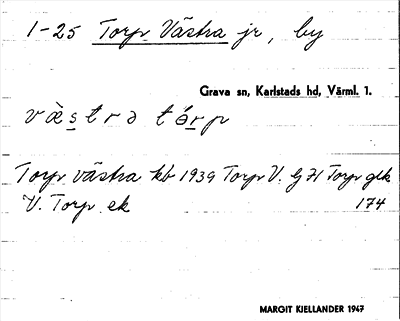 1-25 Torp Västra jr, by
Grava sn, Karlstads hd, Värml. 1.
vàstrə tórp
Torp västra kb 1939 Torp V. Gj 71 Torp gek
V. Torp ek 174
MARGIT KJELLANDER 1947